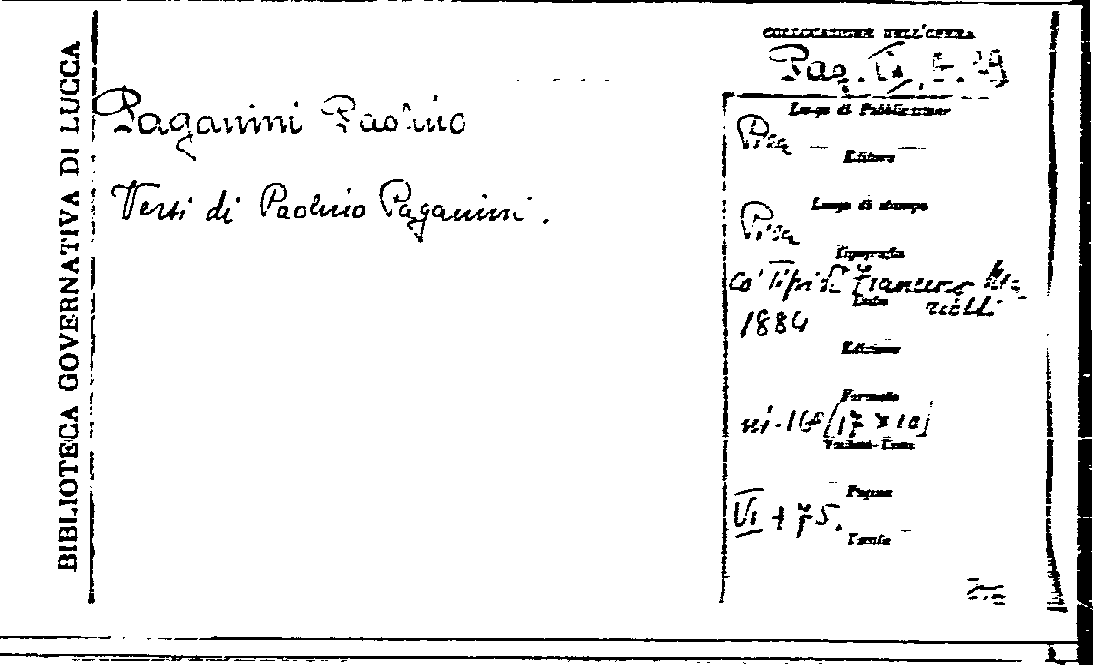 BIBLIOTECA GOVERNATIVA DI LUCCA
COLLOCAZIONE DELL'OPERA
Pag.
Paganini Paolino
Versi di Paolino Paganini.
Luogo di Pubblicazione
Pisa
Editore
Luogo di stampa
Pisa
Tipografia
co' Tipi di Francesco Ma
riotti
Data
1884
Edizione
Formato
in-16º [17 x 10]
Volumi-Tomi
Pagine
VI + 75.
Tavole